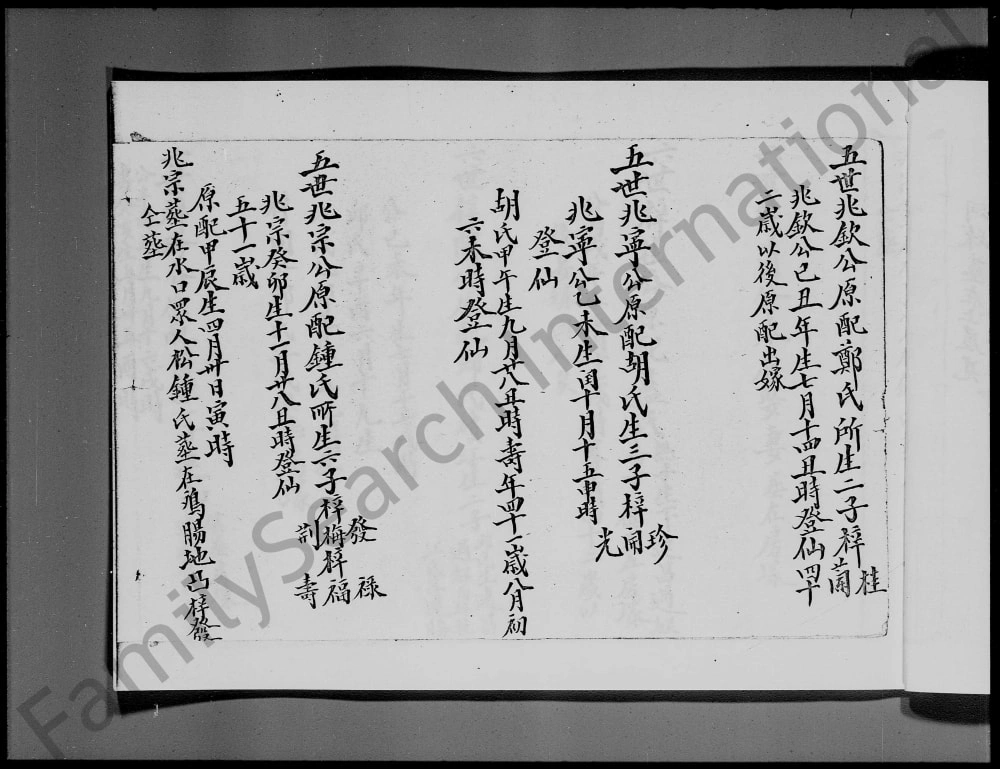 五世兆欽公原配鄭氏所生二子梓桂蘭
兆欽公己丑年生七月十四丑時登仙四十
二歲以後原配出嫁
五世兆寧公原配胡氏生三子梓珍開光
兆寧公乙未生閏十月十五申時
登仙
胡氏甲午生九月廿八丑時壽年四十一歲八月初
六未時登仙
五世兆宗公原配鍾氏所生六子梓發梅荆梓祿福壽
兆宗癸卯生十一月廿八丑時登仙
五十一歲
原配甲辰生四月卅日寅時
兆宗葬在水口眾人松鍾氏葬在鴻腸地凸梓發
仝葬
FamilySearch International